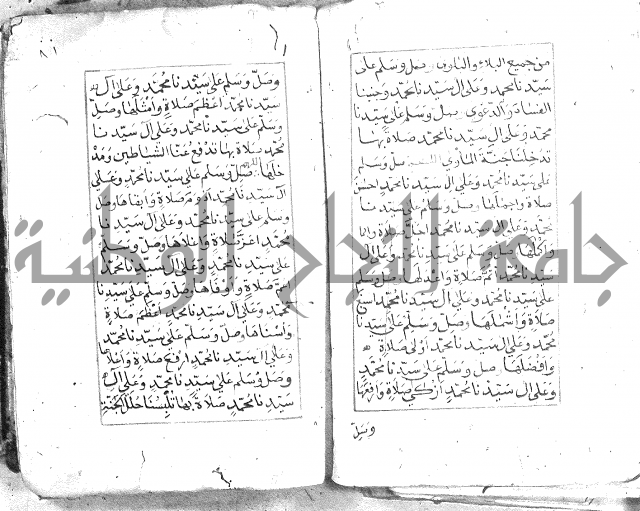 من جميع البلاء والبلوى وصل وسلم على
سيدنا محمد وعلى ال سيدنا محمد وجنبنا
الفساد والدعوى وصل وسلم على سيدنا
محمد وعلى ال سيدنا محمد صلاة بها
تدخلنا جنة المأوى وصل وسلم
على سيدنا محمد وعلى ال سيدنا محمد احسن
صلاة واجملها وصل وسلم على سيدنا
محمد وعلى ال سيدنا محمد صلاة
واكملها وصل وسلم على سيدنا محمد وعلى ال
سيدنا محمد اتم صلاة وصل وسلم
على سيدنا محمد وعلى ال سيدنا محمد
صلاة واشملها وصل وسلم على سيدنا
محمد وعلى ال سيدنا محمد اولى صلاة
وافضلها وصل وسلم على سيدنا محمد
وعلى ال سيدنا محمد ازكى صلاة وارفعها
وصل
٨١
وصل وسلم على سيدنا محمد وعلى ال
سيدنا محمد اعظم صلاة واشملها وصل
وسلم على سيدنا محمد وعلى ال سيدنا
محمد صلاة بها تدفع عنا الشياطين
صل وسلم على سيدنا محمد وعلى
ال سيدنا محمد صلاة وابقاها وصل
وسلم على سيدنا محمد وعلى ال سيدنا
محمد اعز صلاة واعلاها وصل وسلم
على سيدنا محمد وعلى ال سيدنا محمد
صلاة واوفاها وصل وسلم على سيدنا
محمد وعلى ال سيدنا محمد اعظم صلاة
واسناها وصل وسلم على سيدنا محمد
وعلى ال سيدنا محمد ارفع صلاة
وصل وسلم على سيدنا محمد وعلى ال
سيدنا محمد صلاة بها تلبسنا حلل
جامعة النجاح الوطنية